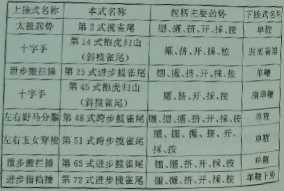 上接式名称 本式名称 包括主要趋势 下接式名称
太极起势 第3式揽雀尾 掤、捋、挤、开、採、按 单鞭
十字手 第14式抱虎归山
(斜揽雀尾) 捋、挤、开、採、按
进步搬拦捶 第25式进步揽雀尾 掤、捋、挤、开、採、按 单鞭
十字手 第45式抱虎归山
(斜揽雀尾) 捋、挤、开、採、按 斜单鞭
左右野马分鬃 第48式跨揽雀尾 掤、捋、挤、开、採、按 单鞭
左右玉女穿梭 第51式跨揽雀尾 掤、捋、挤、开、
採、按 单鞭
进步搬拦捶 第65式进步揽雀尾 掤、捋、挤、开、採、按 单鞭
进步指裆捶 第72式进步揽雀尾 掤、捋、挤、开、採、按 单鞭下势